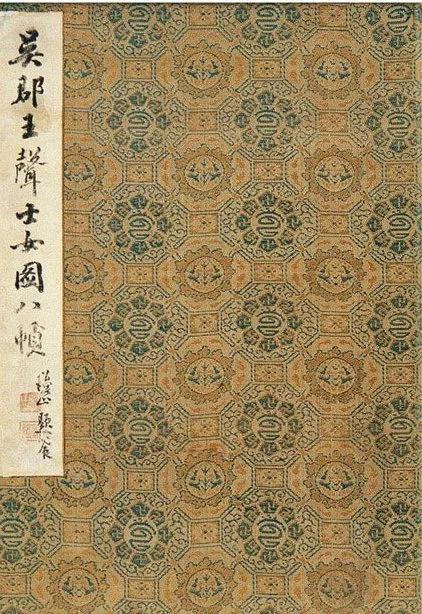 吳郡王聲士女圖八幀
題簽